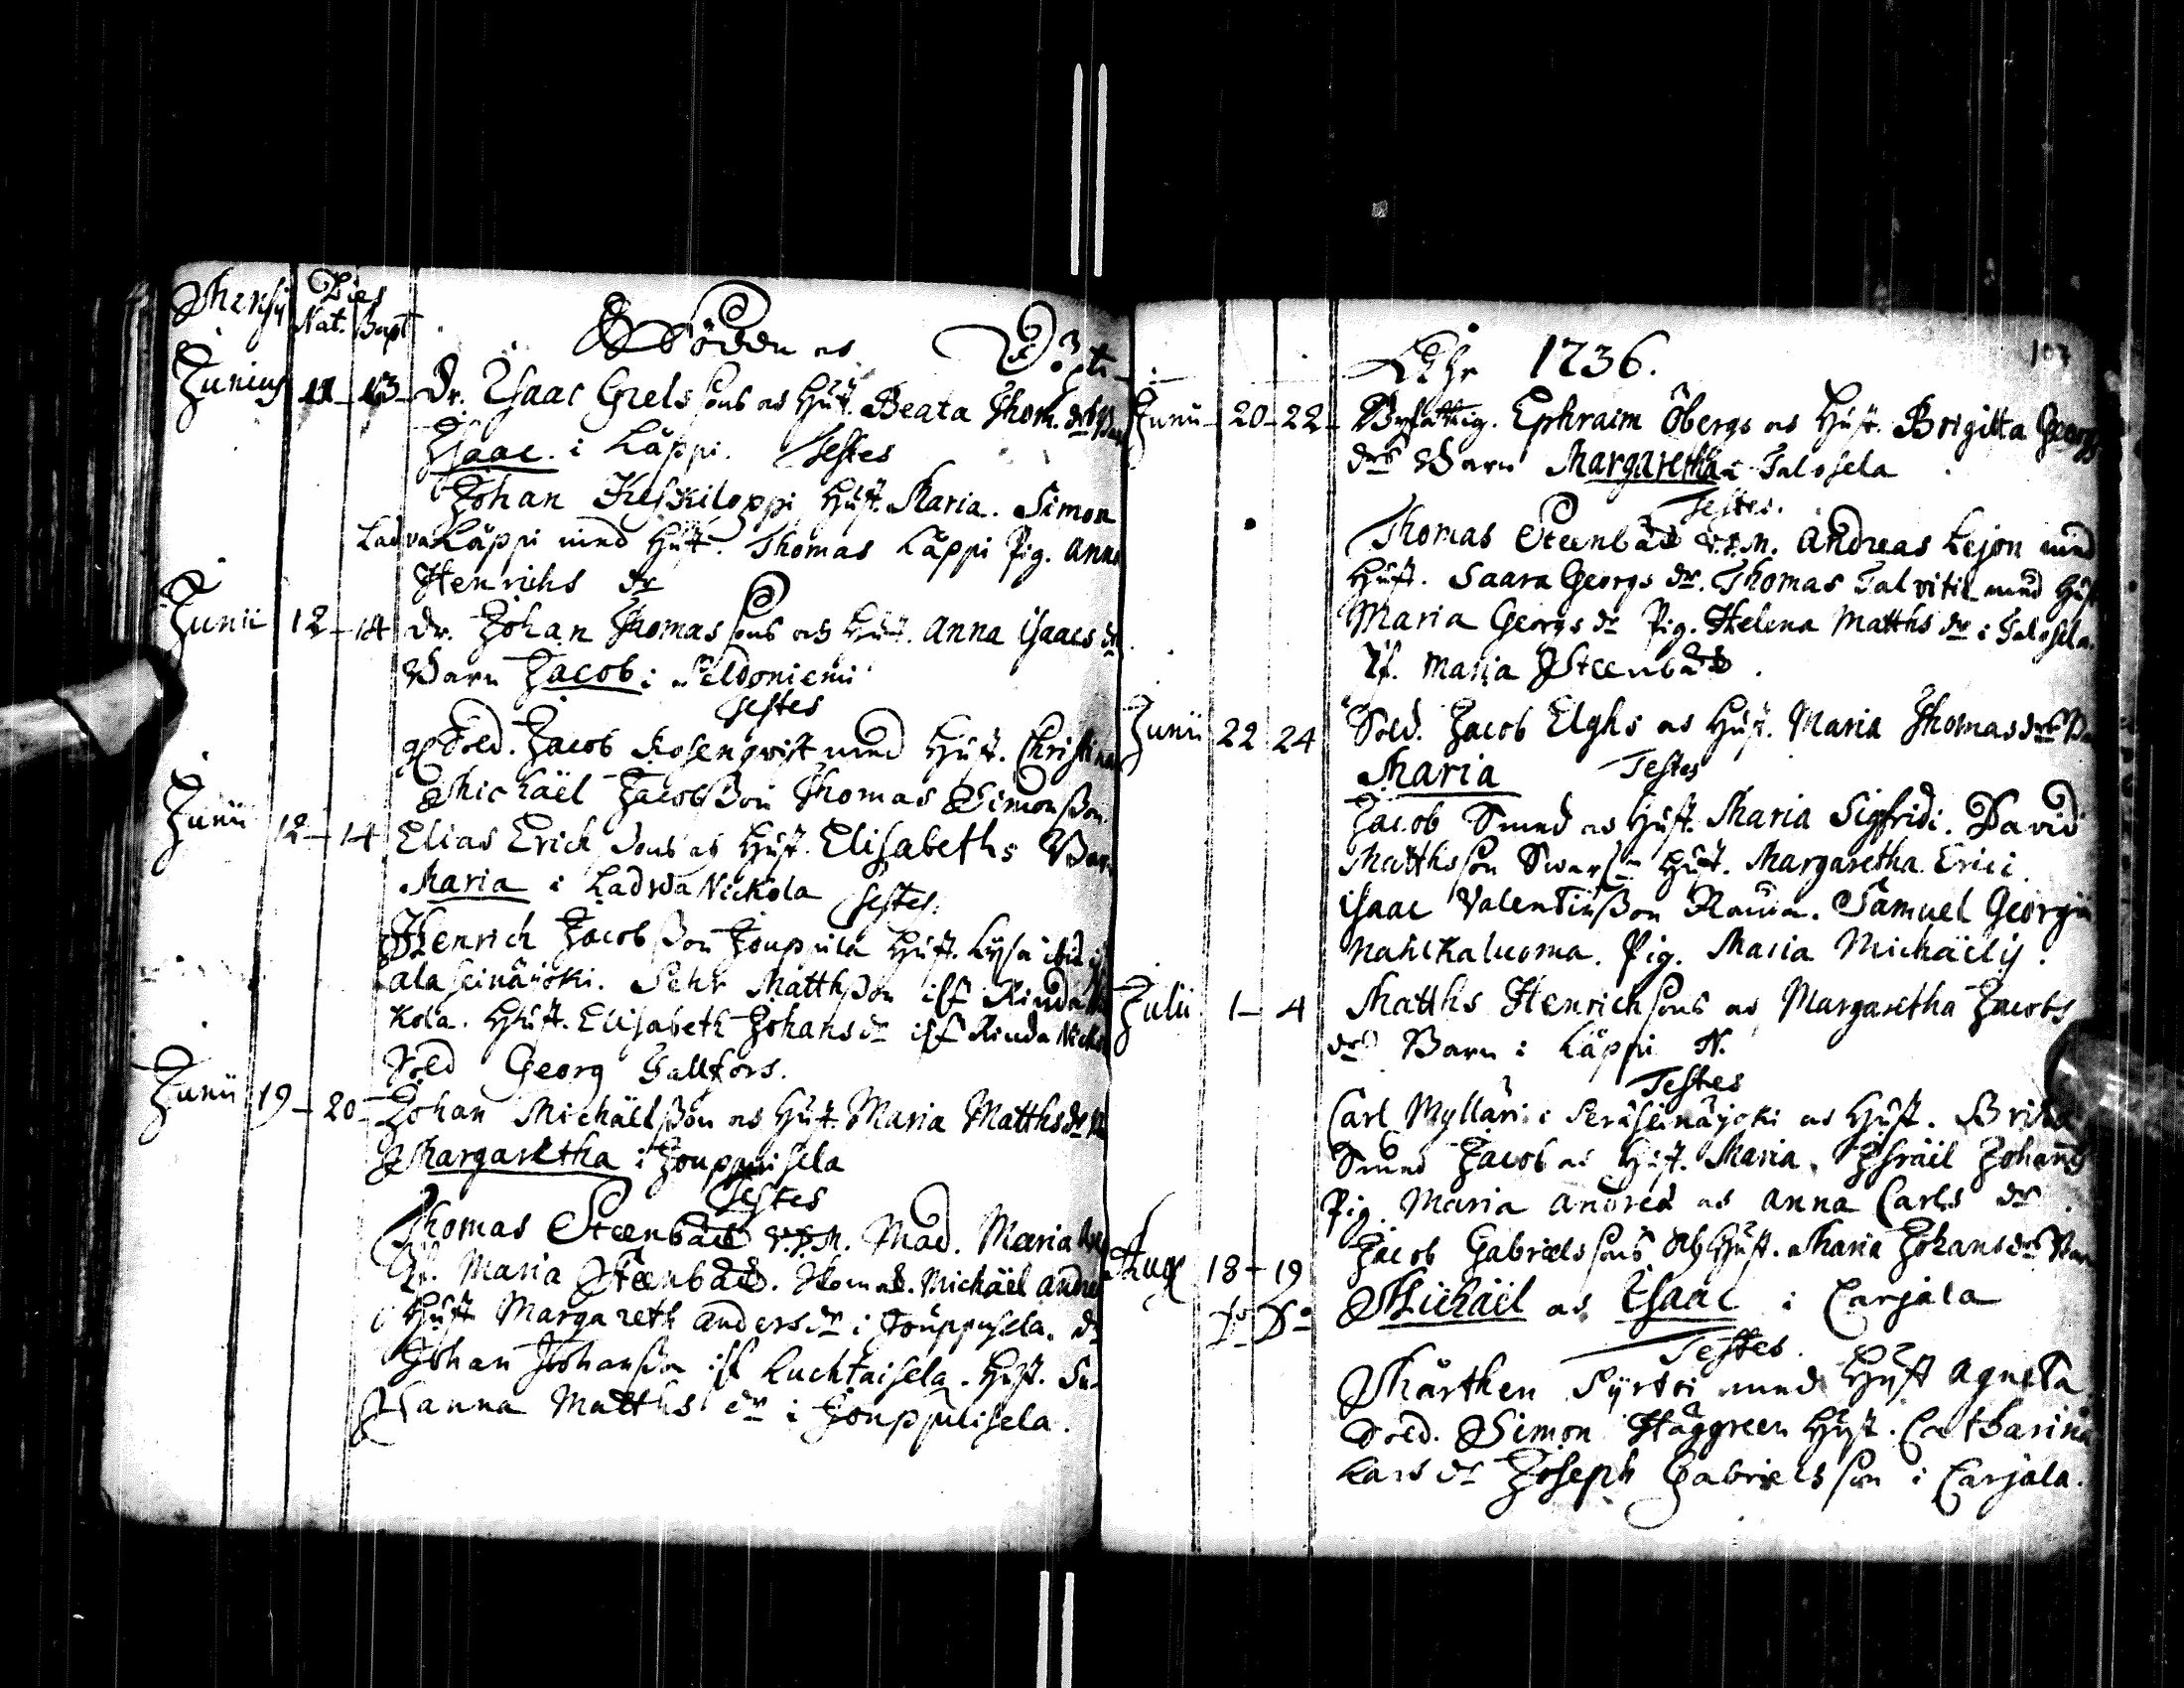 Mensis Dies
Nat. Bapt
Födde as Döpte
Junius 11 - 13 - Dr. Isaac Grels sons as Hust. Beata Thom. drs
Isaac. i Läppi. Testes
Johan Keskiloppi Hust. Maria. Simon
Ladva Läppi med Hust. Thomas Läppi Pig. Anna
Henrichs dr
Junii 12 - 14 Dr. Johan Thomas sons as Hust. Anna Isaacs dr
Barn Jacob i Peldoniemi
Testes
Sold. Jacob Rosenqvist med Hust. Christina
Michäel Jacobsson Thomas Simonsson
Junii 12 - 14 Elias Erich sons as Hust. Elisabeths Barn
Maria i Ladva Nickola Testes.
Henrich Jacobsson Jouppila Hust. Lysa ibid
Alaseinäjoki. Pehr Matthsson Rinda
kola. Hust. Elisabeth Johans dr Rinda Nicko
Sold Georg Tallfors.
Junii 19 - 20 - Johan Michäelsson as Hust. Maria Matths dr
Margaretha i Jouppisela
Testes
Thomas Steenbäck V.P.M. Mad. Maria
Maria Steenbäck. Michäel Andre
Hust Margareth Anders dr i Jouppisela. dr
Johan Johansson Luchtaisela. Hust. Su-
sanna Matths dr i Jouppilisela.
107
Åhr 1736.
Junii - 20 - 22 - Ephraim Öbergs as Hust. Brigitta Georgs
drs Barn Margaretha i Talosela
Testes.
Thomas Steenbäck V.P.M. Andreas Lejon med
Hust. Saara Georgs dr. Thomas Talvitie med Hust
Maria Georgs dr Pig. Helena Matths dr i Talosela.
Maria Steenbäck.
Junii 22 24 Sold. Jacob Elghs as Hust. Maria Thomas drs
Maria Testes
Jacob Smed as Hust. Maria Sigfridi. David
Matthsson Hust. Margaretha Erici.
Isaac Valentinsson Rauma. Samuel Georgii
Nahkaluoma. Pig. Maria Michäelis.
Julii 1 - 4 Matths Henrichsons as Margaretha Jacobs
drs Barn i Läppi N.
Testes
Carl Myllari i Peräseinäjoki as Hust. Brita
Smed Jacob as Hust. Maria. Israël Johans
Pig. Maria Andreä as Anna Carls dr.
Aug 18 - 19 Jacob Gabrielssons as Hust. Maria Johans drs Barn
Do Do Michäel as Isaac i Carjala
Testes.
Mårthen Syrtti med Hust Agneta
Sold. Simon Häggreen Hust. Catharina
Lars dr Joseph Gabrielsson i Carjala.